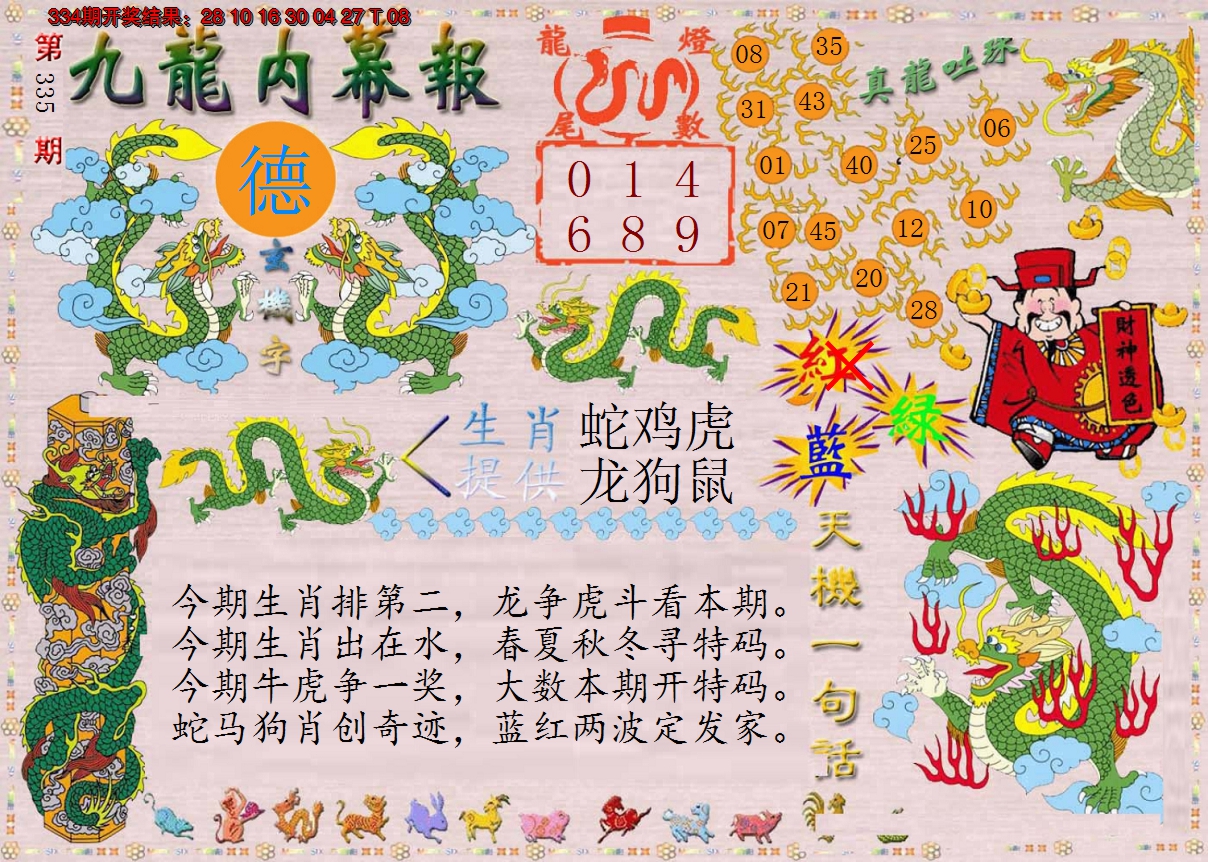 334期开奖结果：28 10 16 30 04 27 T 08
第335期
九龍内幕報
德
玄機字
龍燈
尾數
0 1 4
6 8 9
真龍吐珠
08
35
31
43
25
06
01
40
10
07
45
12
21
20
28
紅
綠
藍
財神透色
生肖提供
蛇鸡虎
龙狗鼠
天機一句話
今期生肖排第二，龙争虎斗看本期。
今期生肖出在水，春夏秋冬寻特码。
今期牛虎争一奖，大数本期开特码。
蛇马狗肖创奇迹，蓝红两波定发家。